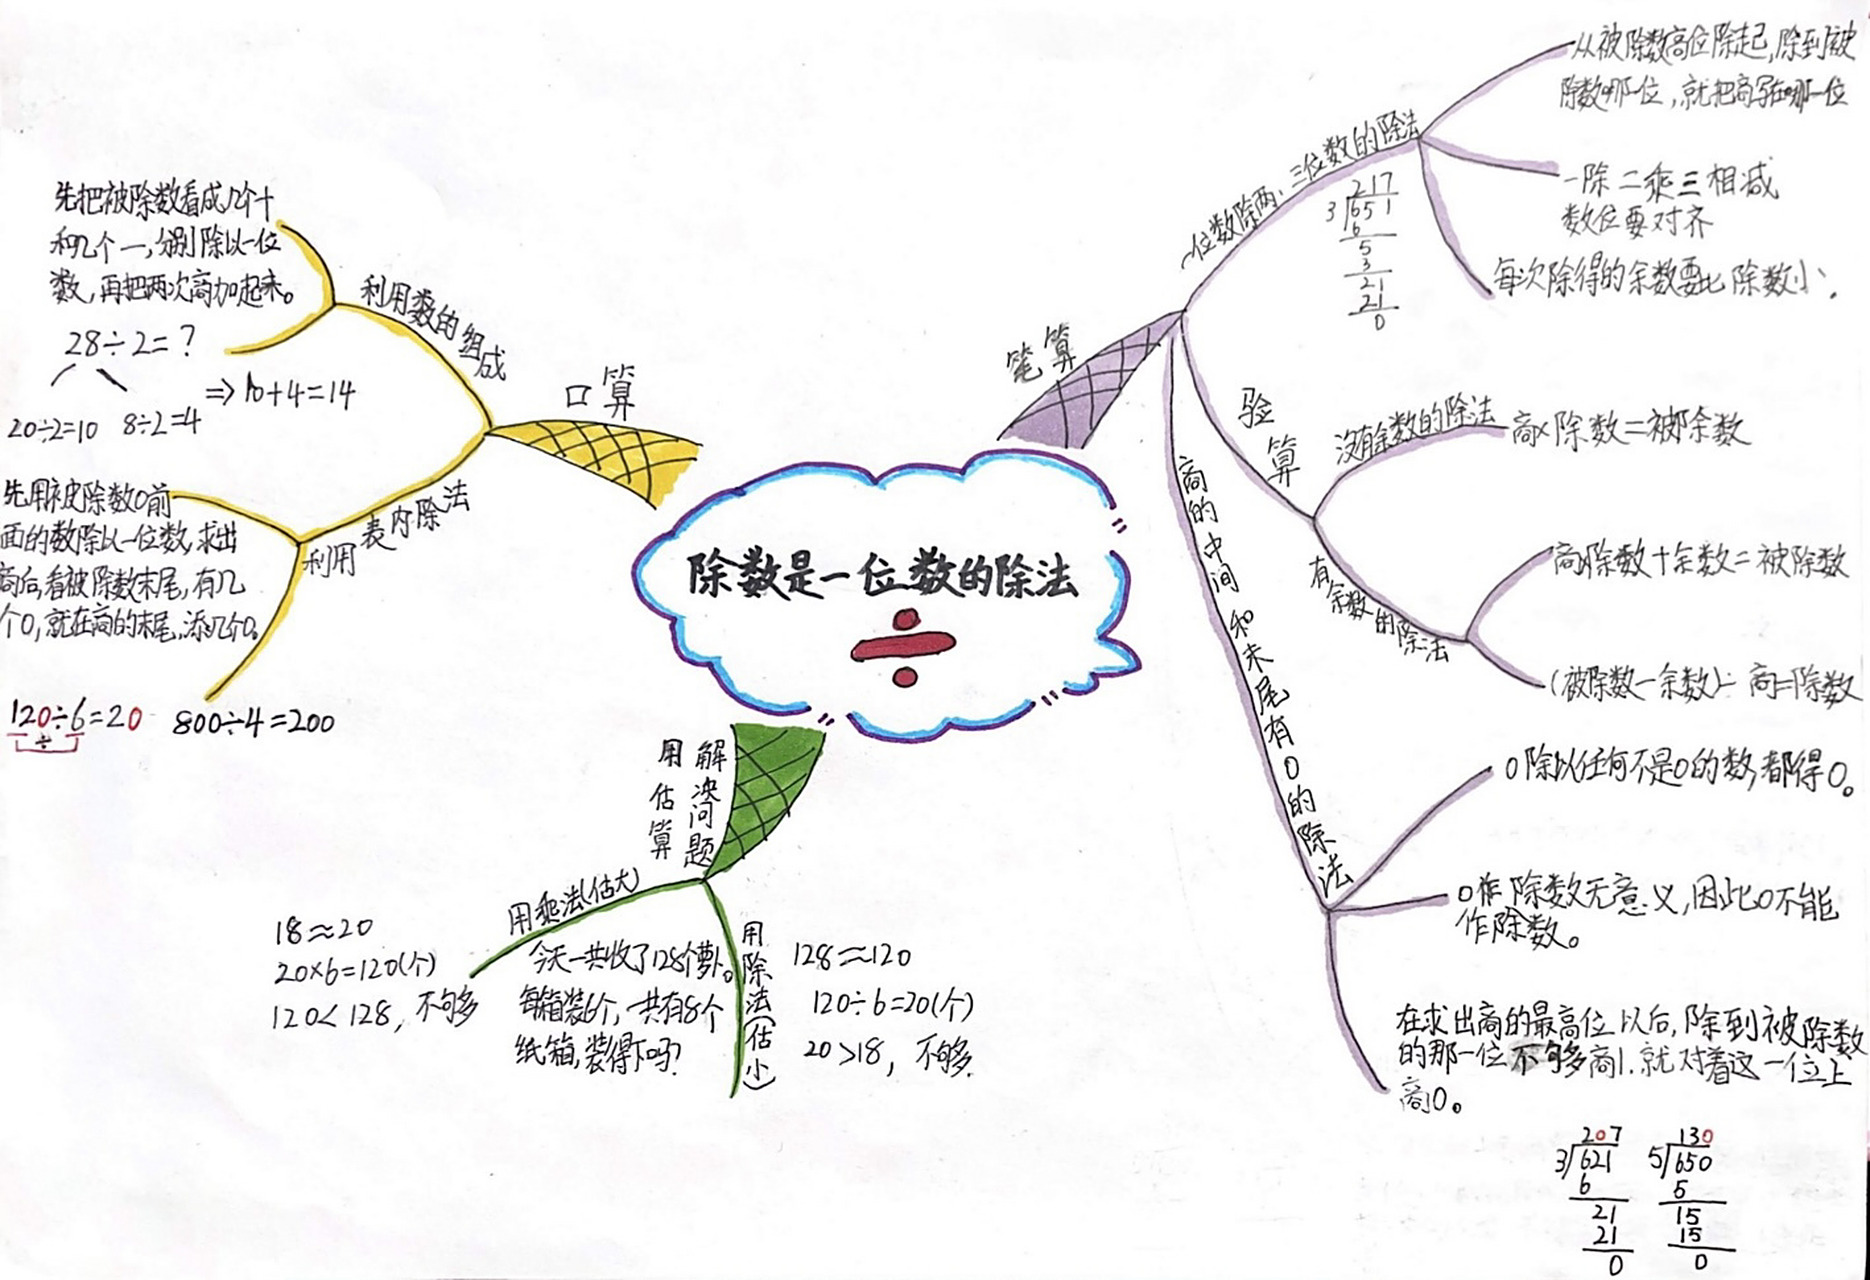 除数是一位数的除法
÷
口算
利用数的组成
先把被除数看成几个十
和几个一,分别除以一位
数,再把两次商加起来。
28÷2=?
20÷2=10 8÷2=4
⇒10+4=14
利用表内除法
先用被除数0前
面的数除以一位数,求出
商后,看被除数末尾,有几
个0,就在商的末尾,添几个0。
120÷6=20 800÷4=200
÷
用估算
解决问题
用乘法(估大)
18≈20
20×6=120(个)
120<128,不够多
今天一共收了128个萝卜。
每箱装6个,一共有8个
纸箱,装得下吗?
用除法(估小)
128≈120
120÷6=20(个)
20>18,不够多.
笔算
一位数除两、三位数的除法
217
3√651
6
5
3
21
21
0
从被除数高位除起,除到被
除数哪一位,就把商写在哪一位
一除二乘三相减
数位要对齐
每次除得的余数要比除数小.
验算
没有余数的除法
商×除数=被除数
有余数的除法
商×除数+余数=被除数
(被除数-余数)÷商=除数
商的中间和末尾有0的除法
0除以任何不是0的数,都得0。
0作除数无意义,因此0不能
作除数。
在求出商的最高位以后,除到被除数
的那一位不够多商1.就对着这一位上
商0。
207
3√621
6
21
21
0
130
5√650
5
15
15
0